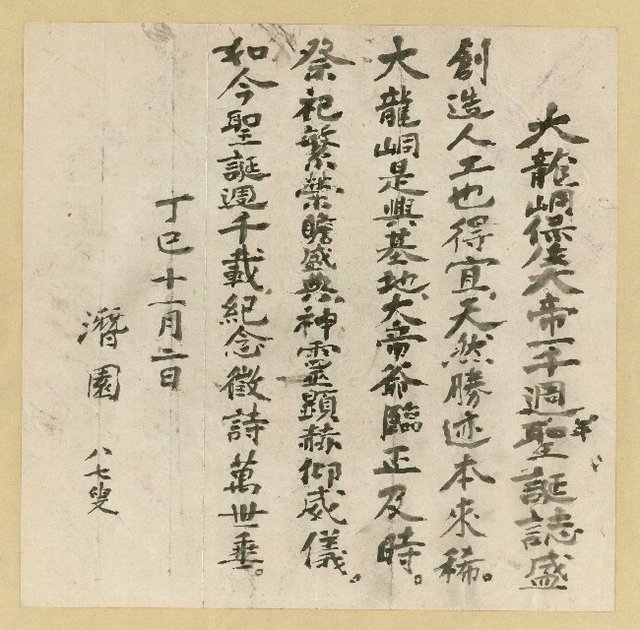 大龍峒保生大帝一千週年聖誕誌盛
創造人工也得宜、天然勝迹本來稀。
大龍峒是興基地、大帝爺臨正及時。
祭祀繁榮瞻盛典、神靈顕赫仰威儀。
如今聖誕週千載、紀念徵詩萬世垂。
丁巳十一月二日
潛園 八七叟